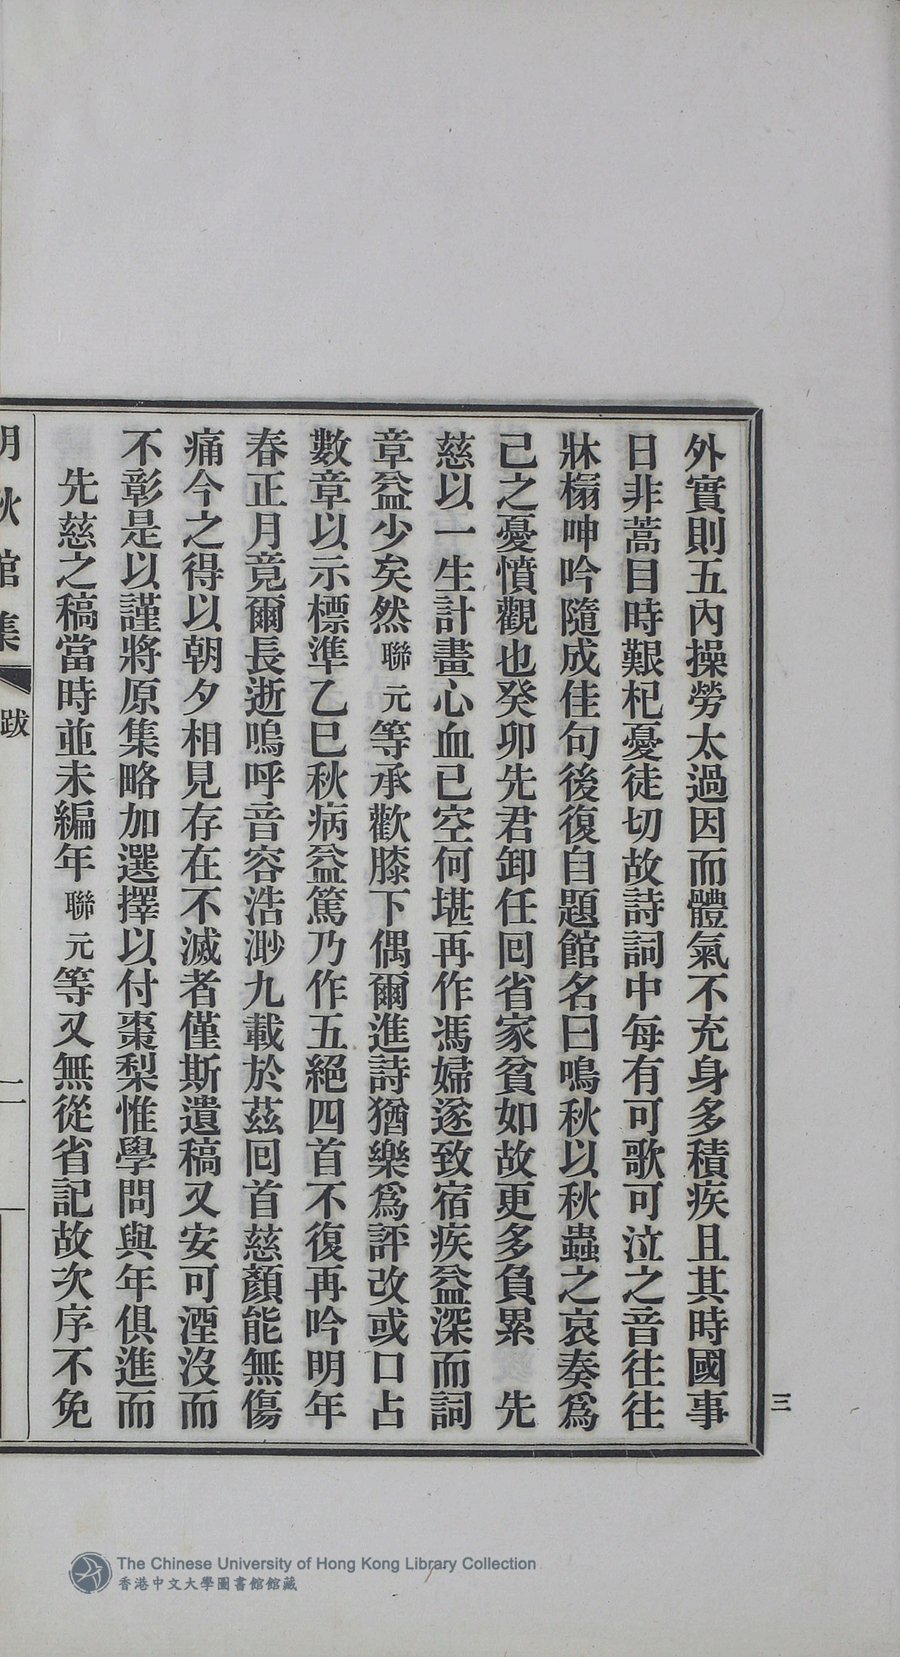 外實則五內操勞太過因而體氣不充身多積疾且其時國事
日非蒿目時艱杞憂徒切故詩詞中每有可歌可泣之音往往
牀榻呻吟隨成佳句後復自題館名曰鳴秋以秋蟲之哀奏爲
己之憂憤觀也癸卯先君卸任回省家貧如故更多負累　先
慈以一生計畫心血已空何堪再作馮婦遂致宿疾益深而詞
章益少矣然聯元等承歡膝下偶爾進詩猶樂爲評改或口占
數章以示標準乙巳秋病益篤乃作五絕四首不復再吟明年
春正月竟爾長逝嗚呼音容浩渺九載於茲回首慈顏能無傷
痛今之得以朝夕相見存在不滅者僅斯遺稿又安可湮沒而
不彰是以謹將原集略加選擇以付棗梨惟學問與年俱進而
先慈之稿當時並未編年聯元等又無從省記故次序不免
秋館集
跋
二
三
The Chinese University of Hong Kong Library Collection
香港中文大學圖書館館藏